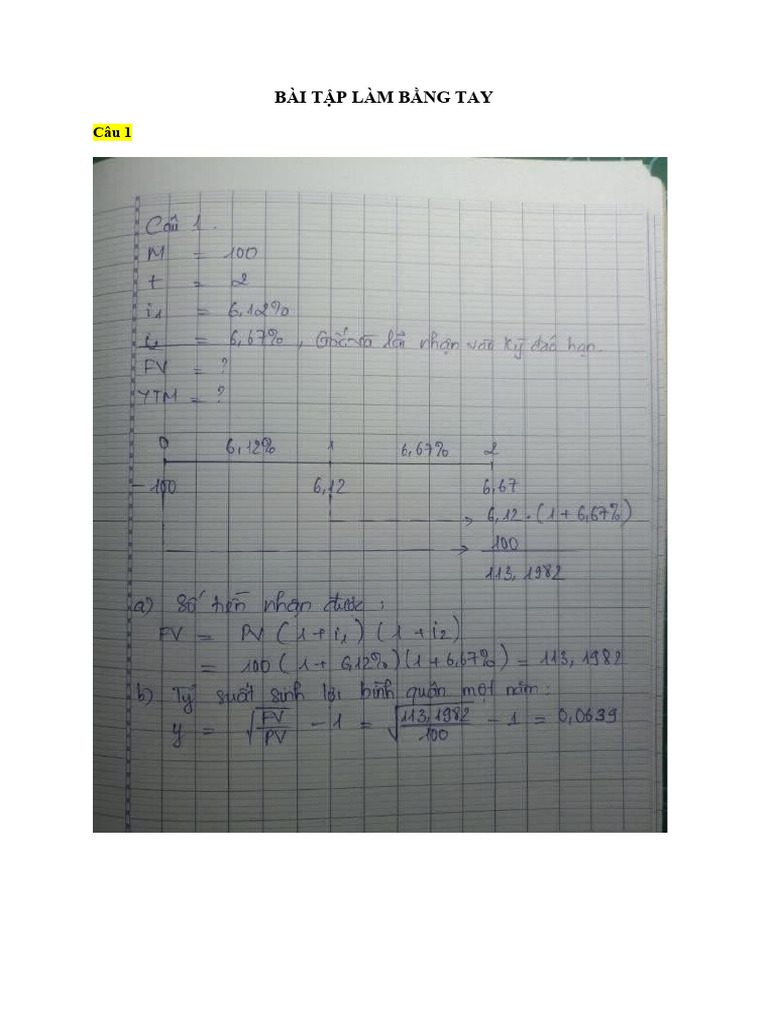 BÀI TẬP LÀM BẰNG TAY
Câu 1
Câu 1.
M = 100
t = 2
i₁ = 6,12%
i₂ = 6,67%, Gốc và lãi nhận vào kỳ đáo hạn.
FV = ?
YTM = ?
0 6,12% 1 6,67% 2
- 100 6,12 6,67
6,12.(1 + 6,67%)
100
113,1982
a) Số tiền nhận được:
FV = PV (1 + i₁) (1 + i₂)
= 100 (1 + 6,12%)(1 + 6,67%) = 113,1982
b) Tỷ suất sinh lời bình quân một năm:
y = √(FV/PV) - 1 = √(113,1982/100) - 1 = 0,0639